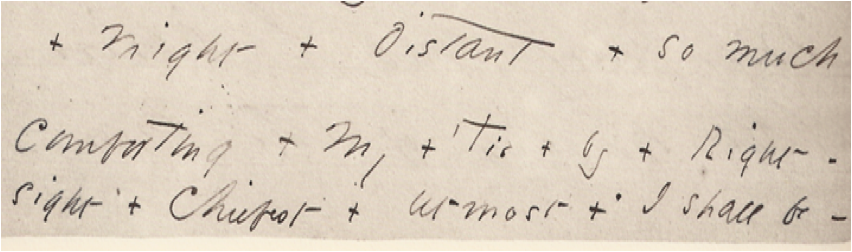 + might + Distant + so much
Comforting + My + 'Tis + by + Right -
sight + Chiefest + Utmost + I shall be -